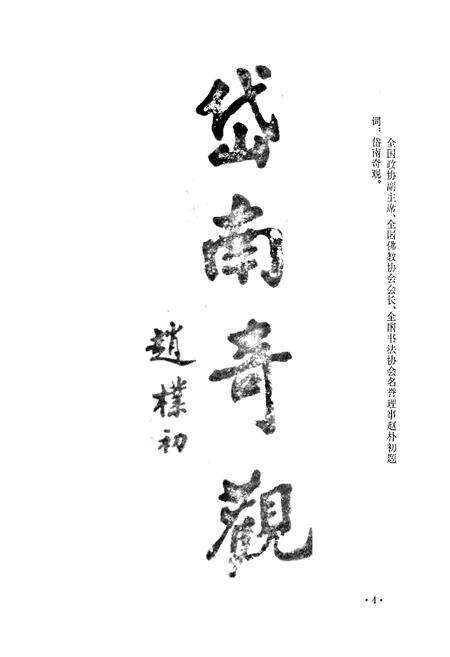 全国政协副主席、全国佛教协会会长、全国书法协会名誉理事赵朴初题
词：岱南奇观。
岱南奇觀
趙樸初
·4·